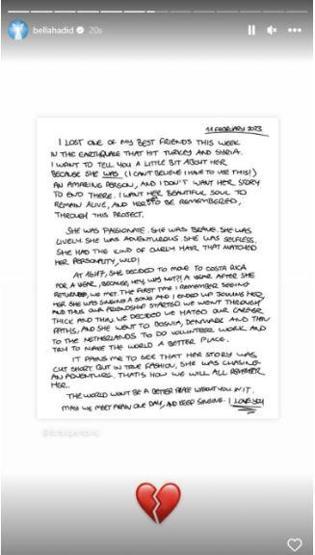 bellahadid 20s
11 FEBRUARY 2023
I LOST ONE OF MY BEST FRIENDS THIS WEEK
IN THE EARTHQUAKE THAT HIT TURKEY AND SYRIA.
I WANT TO TELL YOU A LITTLE BIT ABOUT HER
BECAUSE SHE WAS (I CAN'T BELIEVE I HAVE TO USE THIS!)
AN AMAZING PERSON, AND I DON'T WANT HER STORY
TO END THERE. I WANT HER BEAUTIFUL SOUL TO
REMAIN ALIVE, AND HER TO BE REMEMBERED,
THROUGH THIS PROJECT.
SHE WAS PASSIONATE. SHE WAS BRAVE. SHE WAS
LIVELY. SHE WAS ADVENTUROUS. SHE WAS SELFLESS.
SHE HAD THE KIND OF CURLY HAIR THAT MATCHED
HER PERSONALITY, WILD!
AT SHE DECIDED TO MOVE TO COSTA RICA
FOR A YEAR, BECAUSE, HEY, WHY NOT?! A YEAR AFTER SHE
RETURNED, WE MET. THE FIRST TIME I REMEMBER SEEING
HER SHE WAS SINGING A SONG AND I ENDED UP JOINING HER,
AND THUS OUR FRIENDSHIP STARTED. WE WENT THROUGH
THICK AND THIN, WE DECIDED WE HATED OUR CAREER
PATHS, AND SHE WENT TO BOSNIA, DENMARK AND THEN
TO THE NETHERLANDS TO DO VOLUNTEER WORK AND
TRY TO MAKE THE WORLD A BETTER PLACE.
IT PAINS ME TO SEE THAT HER STORY WAS
CUT SHORT BUT IN TRUE FASHION, SHE WAS CHASING
AN ADVENTURE. THAT'S HOW WE WILL ALL REMEMBER
HER.
THE WORLD WON'T BE A BETTER PLACE WITHOUT YOU IN IT.
MAY WE MEET AGAIN ONE DAY, AND KEEP SINGING. I LOVE YOU